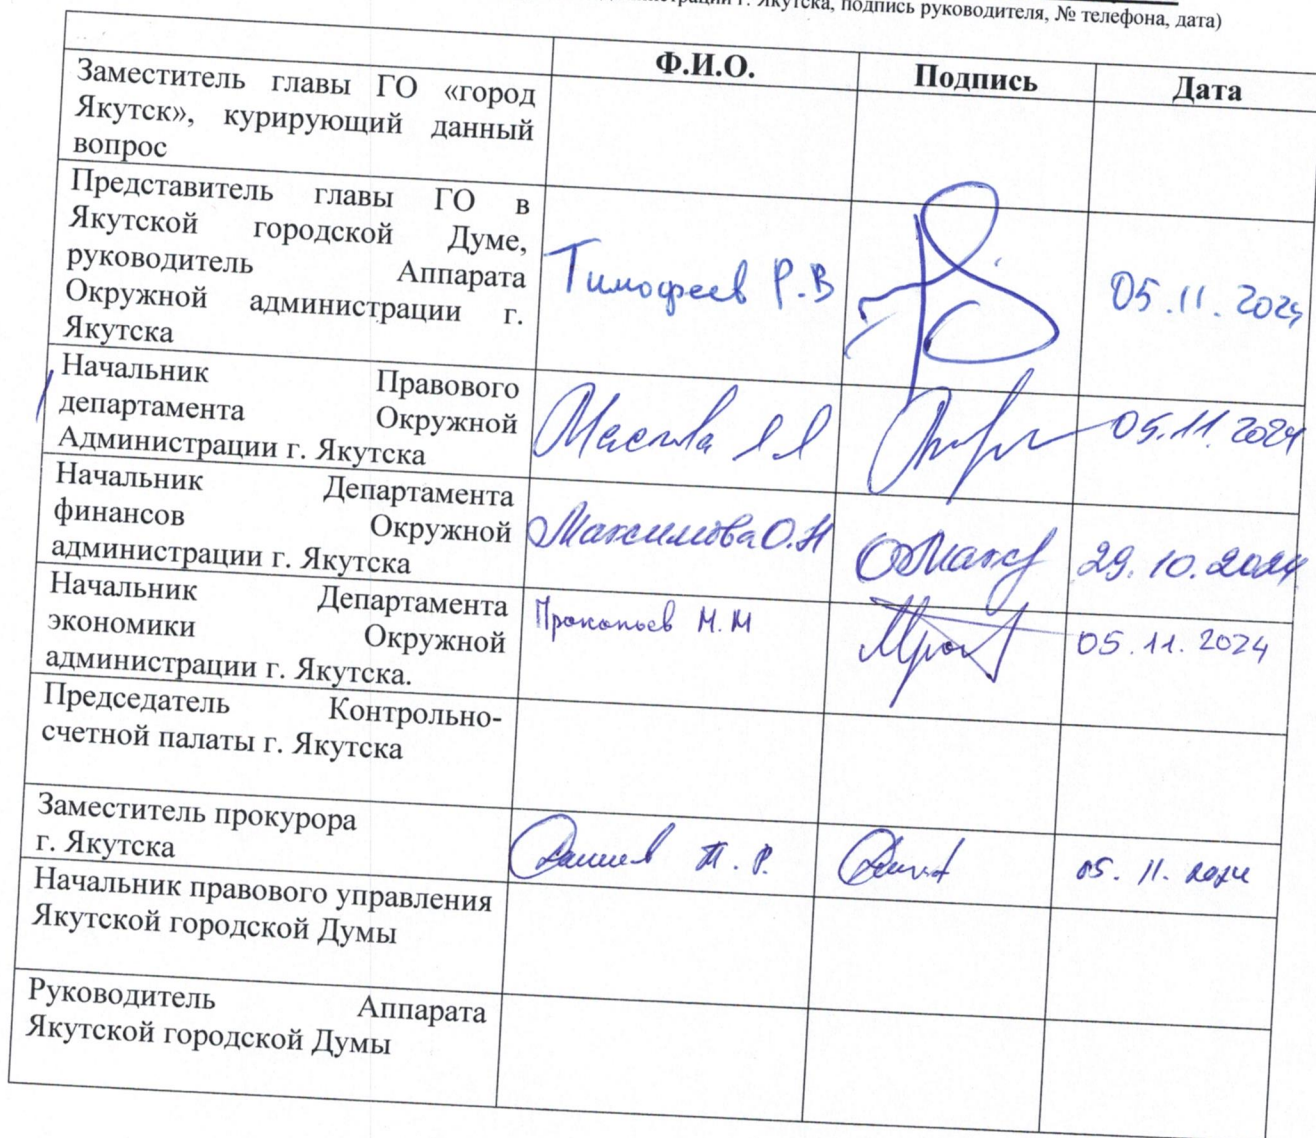 г. Якутска, подпись руководителя, № телефона, дата)
Ф.И.О. Подпись Дата
Заместитель главы ГО «город
Якутск», курирующий данный
вопрос
Представитель главы ГО в
Якутской городской Думе,
руководитель Аппарата
Окружной администрации г.
Якутска
Тимофеев Р.В 05.11.2024
Начальник Правового
департамента Окружной
Администрации г. Якутска
05.11.2024
Начальник Департамента
финансов Окружной
администрации г. Якутска
Максимова О.Н 29.10.2024
Начальник Департамента
экономики Окружной
администрации г. Якутска.
Прокопьев М.М 05.11.2024
Председатель Контрольно-
счетной палаты г. Якутска
Заместитель прокурора
г. Якутска
Т.Р. 05.11.2024
Начальник правового управления
Якутской городской Думы
Руководитель Аппарата
Якутской городской Думы